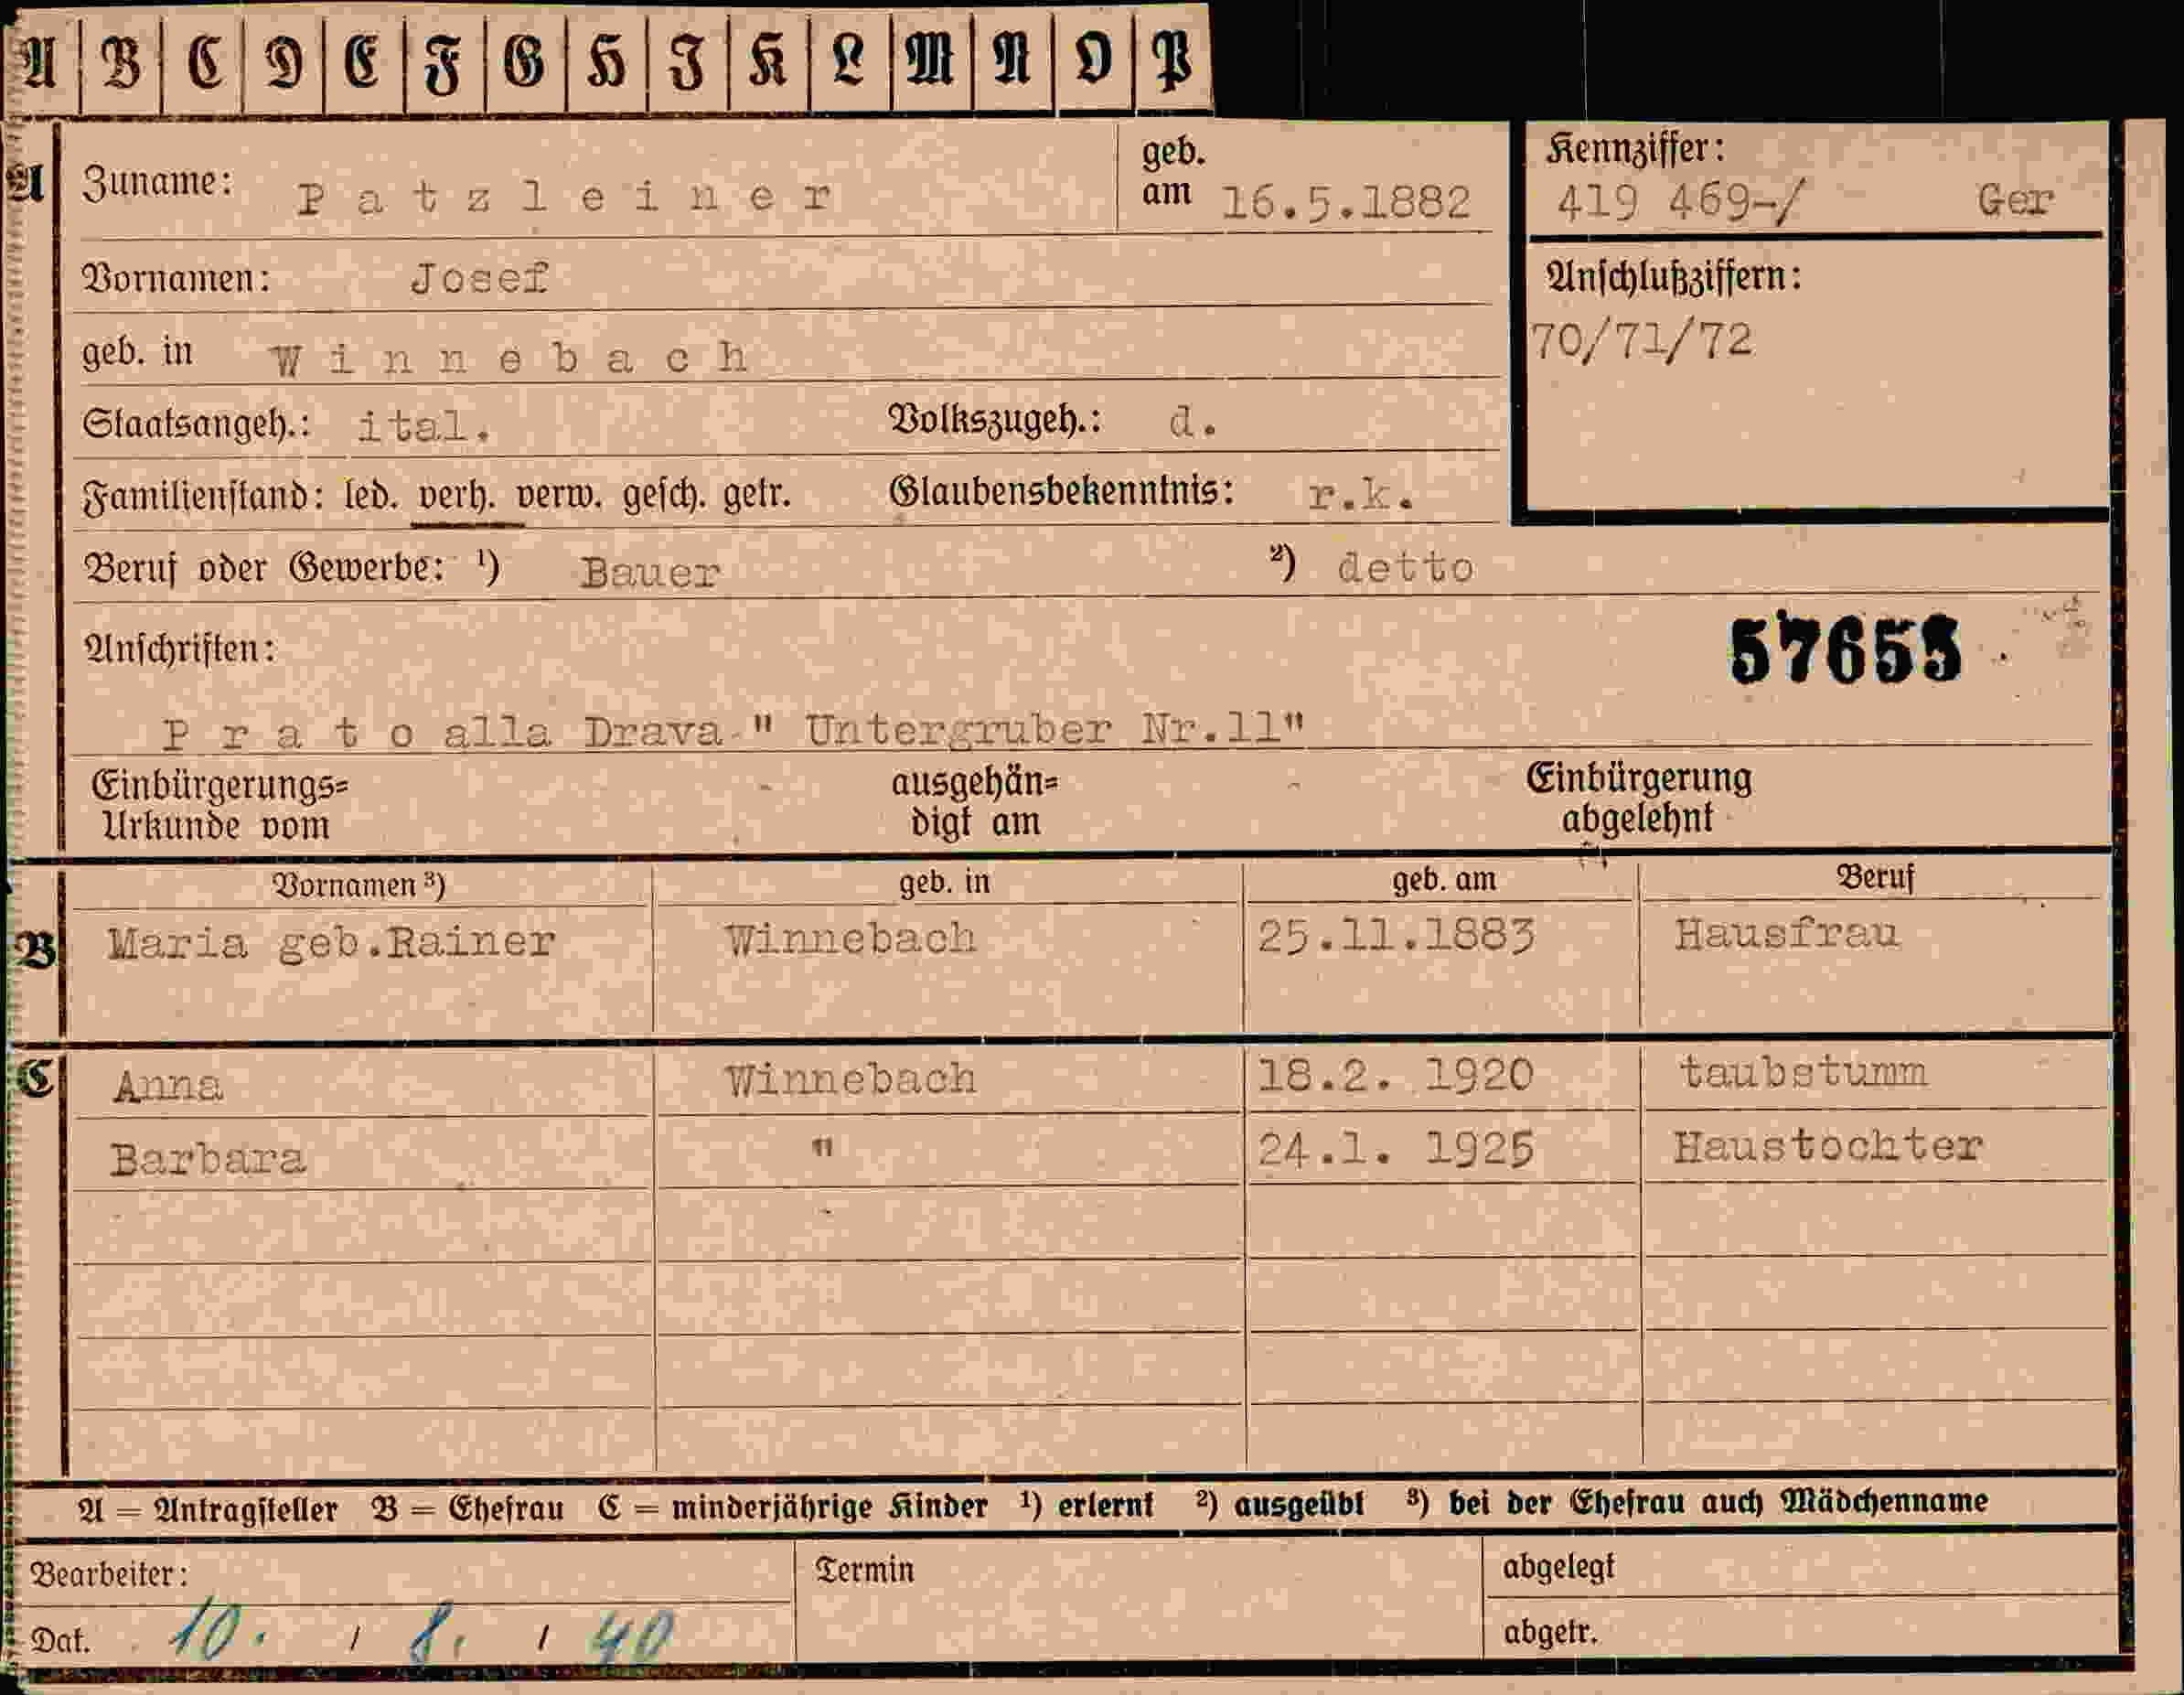 A B C D E F G H I K L M N O P
A Zuname: Patzleiner geb. am 16.5.1882
Kennziffer:
419 469-/ Ger
Vornamen: Josef
Anschlußziffern:
70/71/72
geb. in Winnebach
Staatsangeh.: ital. Volkszugeh.: d.
Familienstand: led. verh. verw. gesch. getr. Glaubensbekenntnis: r.k.
Beruf oder Gewerbe: ¹) Bauer ²) detto
Anschriften:
Prato alla Drava " Untergruber Nr.11"
Einbürgerungs= ausgehän= Einbürgerung
Urkunde vom digt am abgelehnt
Vornamen ³) geb. in geb. am Beruf
B Maria geb.Rainer Winnebach 25.11.1883 Hausfrau
C Anna Winnebach 18.2. 1920 taubstumm
Barbara " 24.1. 1925 Haustochter
A = Antragsteller B = Ehefrau C = minderjährige Kinder ¹) erlernt ²) ausgeübt ³) bei der Ehefrau auch Mädchenname
Bearbeiter: Termin abgelegt
Dat. 10. / 8. / 40 abgetr.